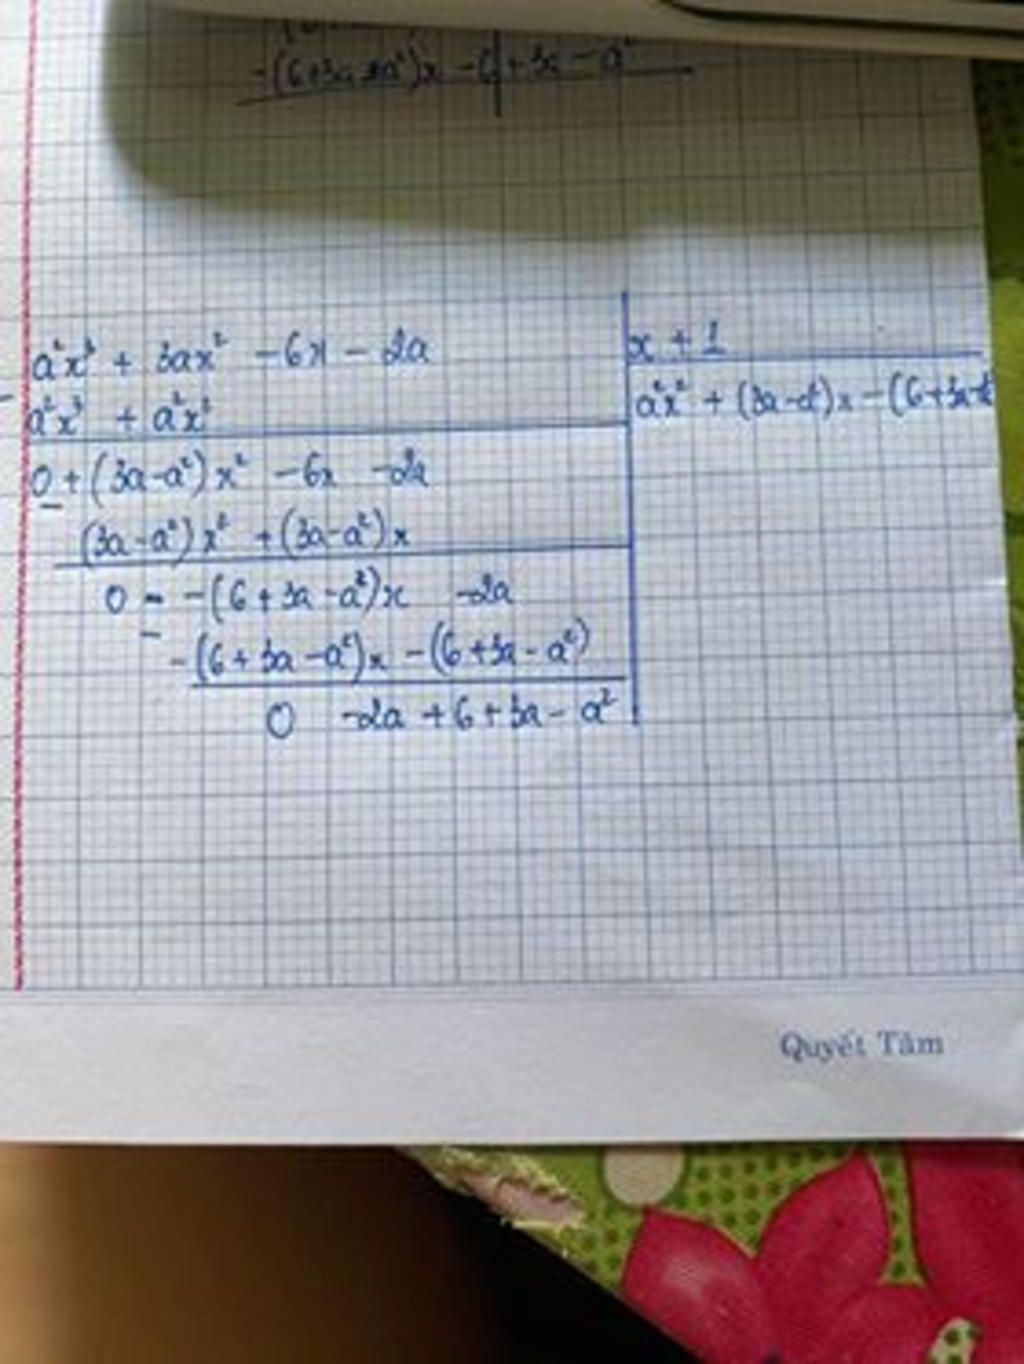 -(6+3a-a²)x -6+3a-a²
a²x³ + 3ax² - 6x - 2a
x + 1
a²x³ + a²x²
a²x² + (3a-a²)x -(6+3a-a²
0 + (3a-a²)x² -6x -2a
(3a-a²)x² + (3a-a²)x
0 - -(6+3a-a²)x -2a
-(6+3a-a²)x -(6+3a-a²)
0 -2a +6+3a-a²
Quyết Tâm